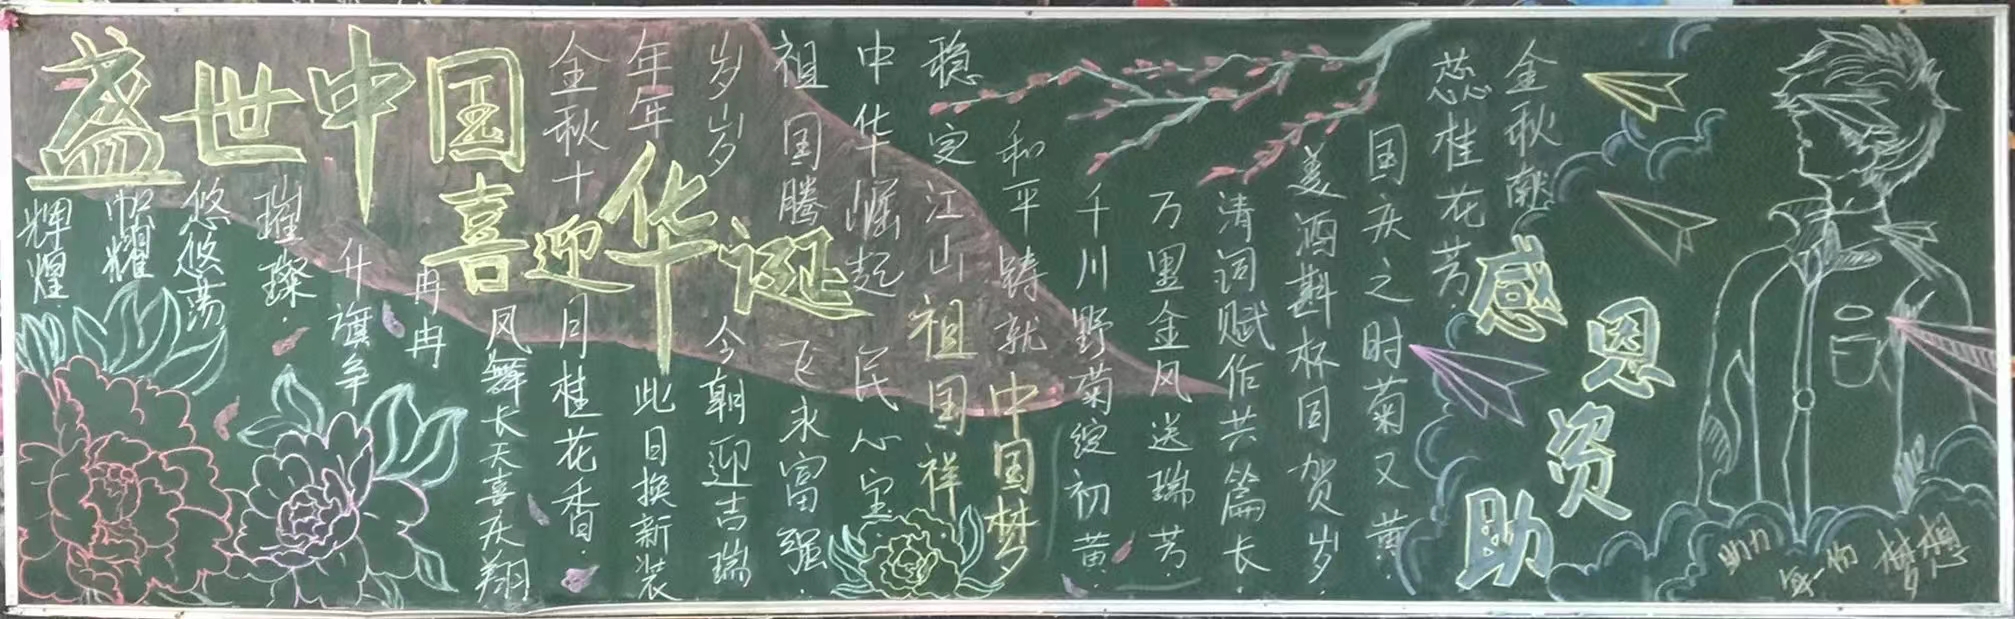 盛世中国
喜迎华诞
辉煌
帜耀
悠悠荡
璀璨
升旗伞
冉冉
凤舞长天喜庆翔
金秋十月桂花香
年年此日换新装
岁岁今朝迎吉瑞
祖国腾飞永富强
中华崛起民心宝
稳定江山祖国祥
和平铸就中国梦
千川野菊绽初黄
万里金风送瑞芳
清词赋作共篇长
美酒斟杯同贺岁
国庆之时菊又黄
蕊桂花芳
金秋献
感恩资助
助力每一份梦想